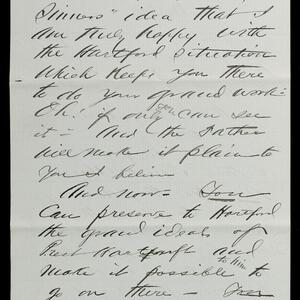 Sinners" idea that I
am truly happy with
the Hartford situation
which keeps you there
to do your grand work-
Oh! if only you can see
it - and the Father
will make it plain to
you I believe
And now - You
Can preserve to Hartford
the grand ideals of
Past and to him
make it possible to
go on there -